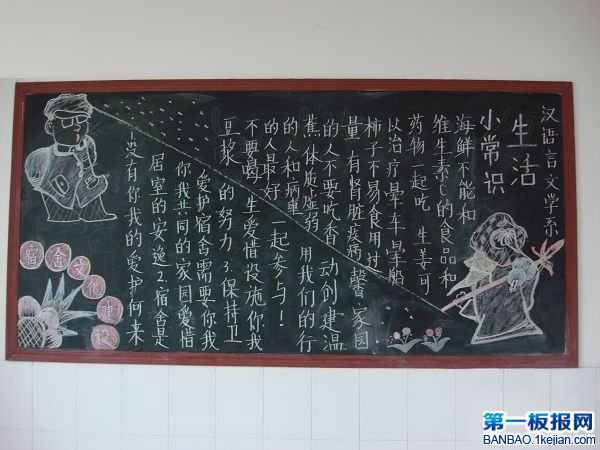 汉语言文学系
生活
小常识
海鲜不能和
维生素C的食品和
药物一起吃 生姜可
以治疗晕车晕船
柿子不易食用过
量 有肾脏疾病
的人不要吃香
蕉 体质虚弱
的人和病重
的人最好
不要喝
豆浆
1没有你我的爱护何来
居室的安逸2.宿舍是
你我共同的家园爱惜
爱护宿舍需要你我
的努力3.保持卫
生爱惜设施你我
一起参与！
用我们的行
动创建温
馨家园.
宿舍文化建设
第一板报网
BANBAO.1kejian.com